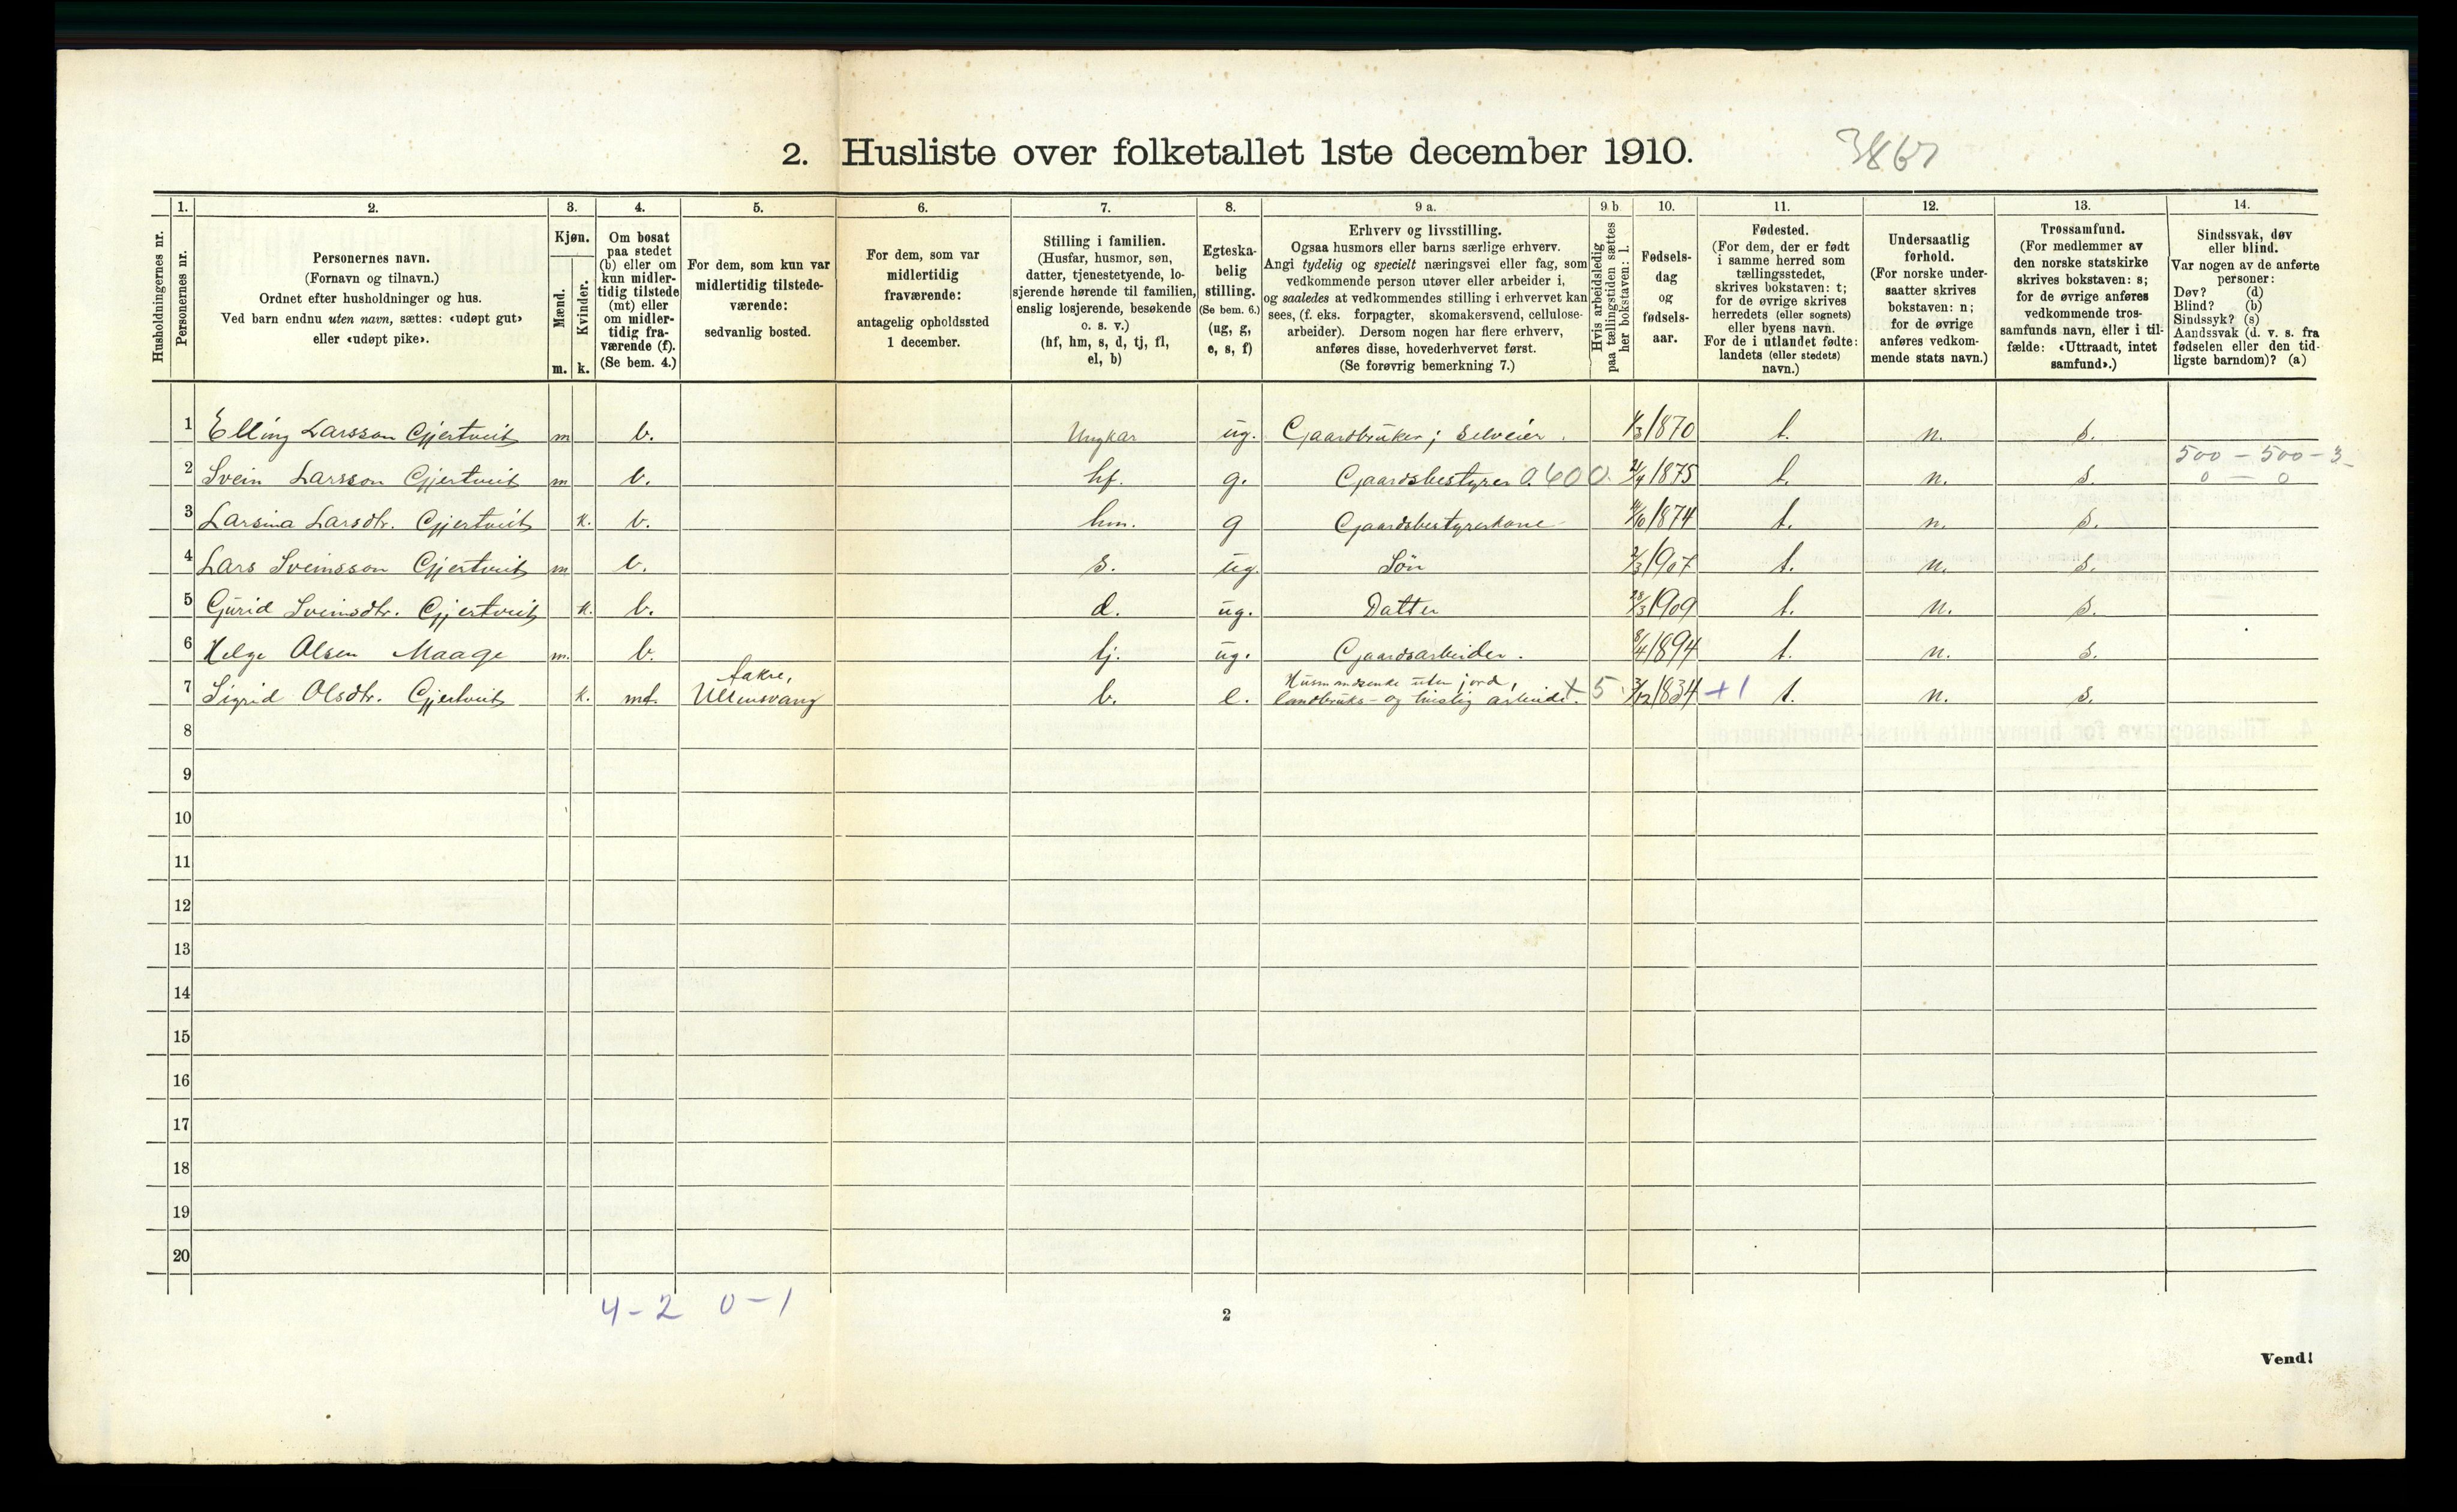 2. Husliste over folketallet 1ste december 1910.
3867
Husholdningernes nr.
1.
Personernes nr.
2.
Personernes navn.
(Fornavn og tilnavn.)
Ordnet efter husholdninger og hus.
Ved barn endnu uten navn, sættes: «udøpt gut»
eller «udøpt pike».
3.
Kjøn.
Mænd.
Kvinder.
m. k.
4.
Om bosat
paa stedet
(b) eller om
kun midler-
tidig tilstede
(mt) eller
om midler-
tidig fra-
værende (f).
(Se bem. 4.)
5.
For dem, som kun var
midlertidig tilstede-
værende:
sedvanlig bosted.
6.
For dem, som var
midlertidig
fraværende:
antagelig opholdssted
1 december.
7.
Stilling i familien.
(Husfar, husmor, søn,
datter, tjenestetyende, lo-
sjerende hørende til familien,
enslig losjerende, besøkende
o. s. v.)
(hf, hm, s, d, tj, fl,
el, b)
8.
Egteska-
belig
stilling.
(Se bem. 6.)
(ug, g,
e, s, f)
9 a.
Erhverv og livsstilling.
Ogsaa husmors eller barns særlige erhverv.
Angi tydelig og specielt næringsvei eller fag, som
vedkommende person utøver eller arbeider i,
og saaledes at vedkommendes stilling i erhvervet kan
sees, (f. eks. forpagter, skomakersvend, cellulose-
arbeider). Dersom nogen har flere erhverv,
anføres disse, hovederhvervet først.
(Se forøvrig bemerkning 7.)
9 b
Hvis arbeidsledig
paa tællingstiden sættes
her bokstaven: l.
10.
Fødsels-
dag
og
fødsels-
aar.
11.
Fødested.
(For dem, der er født
i samme herred som
tællingsstedet,
skrives bokstaven: t;
for de øvrige skrives
herredets (eller sognets)
eller byens navn.
For de i utlandet fødte:
landets (eller stedets)
navn.)
12.
Undersaatlig
forhold.
(For norske under-
saatter skrives
bokstaven: n;
for de øvrige
anføres vedkom-
mende stats navn.)
13.
Trossamfund.
(For medlemmer av
den norske statskirke
skrives bokstaven: s;
for de øvrige anføres
vedkommende tros-
samfunds navn, eller i til-
fælde: «Uttraadt, intet
samfund».)
14.
Sindssvak, døv
eller blind.
Var nogen av de anførte
personer:
Døv? (d)
Blind? (b)
Sindssyk? (s)
Aandssvak (d. v. s. fra
fødselen eller den tid-
ligste barndom)? (a)
1 Elling Larsson Gjertveit m b. Ungkar ug. Gaardbruker; Selveier. 1/3 1870 t. n. s.
500 - 500 - 3
2 Svein Larsson Gjertveit m b. hf. g. Gaardsbestyrer 0.600. 21/4 1875 t. n. s. 0 - 0
3 Larsina Larsdtr. Gjertveit k. b. hm. g Gaardsbestyrerkone /10 1874 t. n. s.
4 Lars Sveinsson Gjertveit m b. s. ug. Søn 2/3 1907 t. n. s.
5 Gurid Sveinsdtr. Gjertveit k. b. d. ug. Datter 28/3 1909 t. n. s.
6 Helge Olsen Maage m. b. tj. ug. Gaardsarbeider. 8/4 1894 t. n. s.
7 Sigrid Olsdtr. Gjertveit k. mt. Aakre, Ullensvang b. e. Husmandsenke uten jord, landbruks- og huslig arbeide. x 5 3/12 1834 +1 t. n. s.
8
9
10
11
12
13
14
15
16
17
18
19
20
4 - 2 0 - 1
2
Vend!